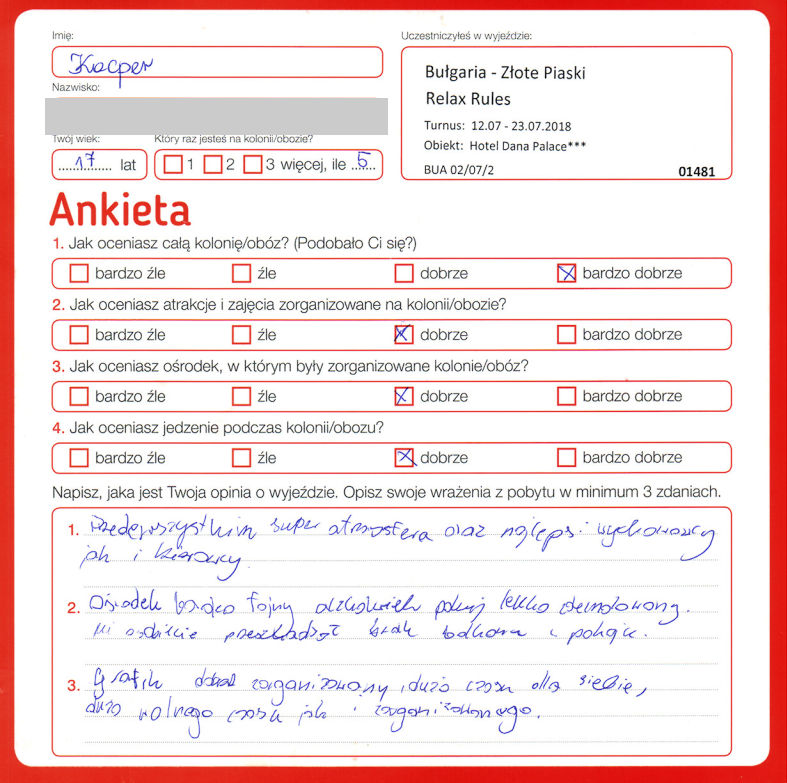 Imię:
Kacper
Nazwisko:
Twój wiek:
17 lat
Który raz jesteś na kolonii/obozie?
1 2 3 więcej, ile 5
Uczestniczyłeś w wyjeździe:
Bułgaria - Złote Piaski
Relax Rules
Turnus: 12.07 - 23.07.2018
Obiekt: Hotel Dana Palace***
BUA 02/07/2 01481
Ankieta
1. Jak oceniasz całą kolonię/obóz? (Podobało Ci się?)
bardzo źle źle dobrze bardzo dobrze
2. Jak oceniasz atrakcje i zajęcia zorganizowane na kolonii/obozie?
bardzo źle źle dobrze bardzo dobrze
3. Jak oceniasz ośrodek, w którym były zorganizowane kolonie/obóz?
bardzo źle źle dobrze bardzo dobrze
4. Jak oceniasz jedzenie podczas kolonii/obozu?
bardzo źle źle dobrze bardzo dobrze
Napisz, jaka jest Twoja opinia o wyjeździe. Opisz swoje wrażenia z pobytu w minimum 3 zdaniach.
1. Przedewszystkim super atmosfera oraz najlepsi wychowawcy
jak i kierowcy.
2. Ośrodek bardzo fajny aczkolwiek pokój lekko zdemolowany.
Mi osobiście przeszkadzał brak balkonu w pokoju.
3. Grafik dobrze zorganizowany, dużo czasu dla siebie,
dużo wolnego czasu jak i zorganizowanego.